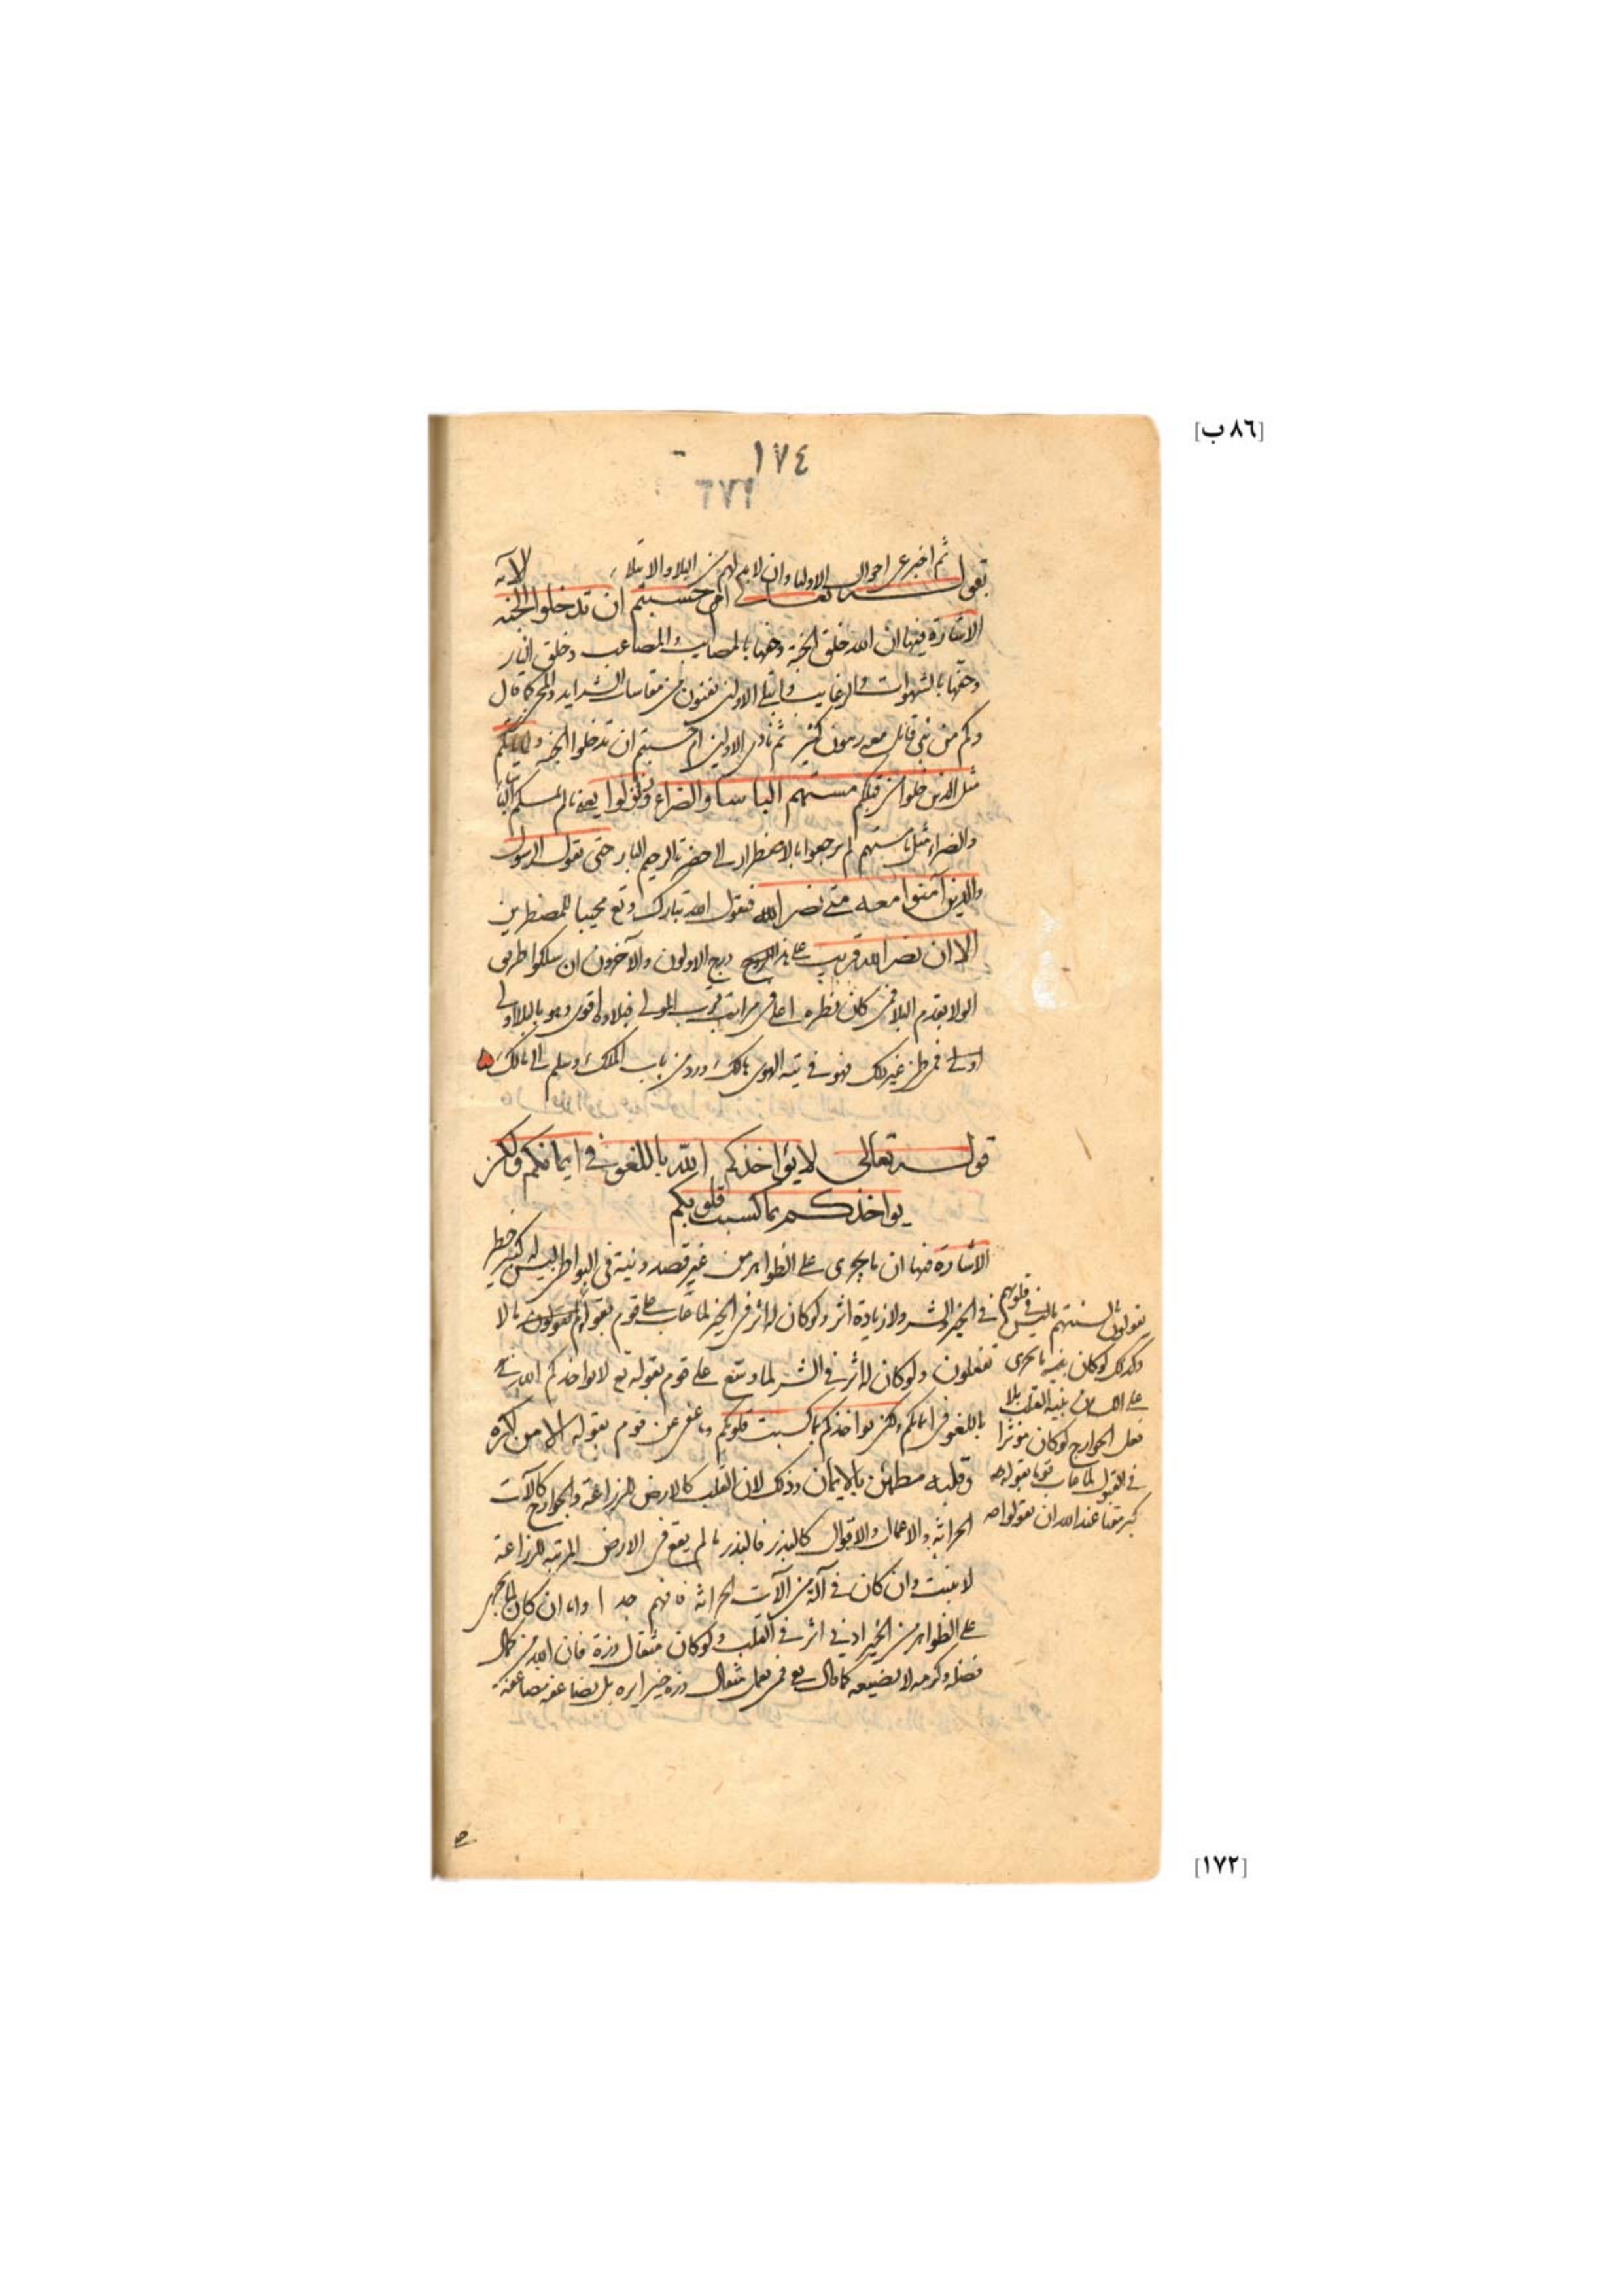 [٨٦ ب]
١٧٤
ثم اخبر عن احوال الاولياء وان لابد لهم من البلاء والابتلاء
بقوله تعالى ام حسبتم ان تدخلوا الجنه الآية
الاشارة فيها ان الله خلق الجنة وحفها بالمصايب والمصاعب وخلق النار
وحفها بالشهوات والرغايب من مقاسات الشدايد والمحن كما قال
وكم من نبي قاتل معه ربيون كثير ثم نادى الاولين ام حسبتم ان تدخلوا الجنة ولما ياتكم
مثل الذين خلوا من قبلكم مستهم الباسا والضراء وزلزلوا يعنى ما لم يمسكم البأسا
والضراء مثل ما مستهم لم ترجعوا بالاضطرار الى حضرة الرحيم البار حتى يقول الرسول
والذين آمنوا معه متى نصر الله فيقول الله تبارك وتع مجيبا للمضطرين
الا ان نصر الله قريب على هذا درج الاولون والآخرون ان سلكوا طريق
الولا بقدم البلا فمن كان نظره اعلى في مراتب قرب المولى فبلاؤه اقوى وهو بالبلا اولى
اولى فمن ظن غير ذلك فهو في تيه الهوى هالك
قوله تعالى لا يؤاخذكم الله باللغو في ايمانكم ولكن
يواخذكم بما كسبت قلوبكم
الاشارة فيها ان ما يجرى على الظواهر من غير قصد ونية في البواطن ليس له كثير خطر
في الخير والشر ولا زيادة اثر ولو كان له اثر في الخير لما عاب على قوم بقوله يقولون ما لا
تفعلون ولو كان له اثر في الشر لما وسع على قوم بقوله تع لا يواخذكم الله
باللغو في ايمانكم ولكن يواخذكم بما كسبت قلوبكم وما عفى عن قوم بقوله الا من اكره
وقلبه مطمئن بالايمان وذلك لان القلب كالارض للزراعة والجوارح كالآت
الحراثة والاعمال والاقوال كالبذر فالبذر ما لم يقع في الارض المرتبة للزراعة
لا ينبت وان كان في آلة من الآت الحراثة فافهم جدا واما ان كان لما يجرى
على الظواهر من الخير ادنى اثر في القلب ولو كان مثقال ذرة فان الله من كمال
فضله وكرمه لا يضيعه كما قال تع فمن يعمل مثقال ذرة خيرا يره بل يضاعفه
يقولون بالسنتهم ما ليس في قلوبهم
وكذلك لو كان نية ما يجرى
على اللسان بنية القلب بلا
فعل الجوارح لو كان مؤثرا
في القبول لما عاب قوما بقوله
كبر مقتا عند الله ان تقولوا
[١٧٢]